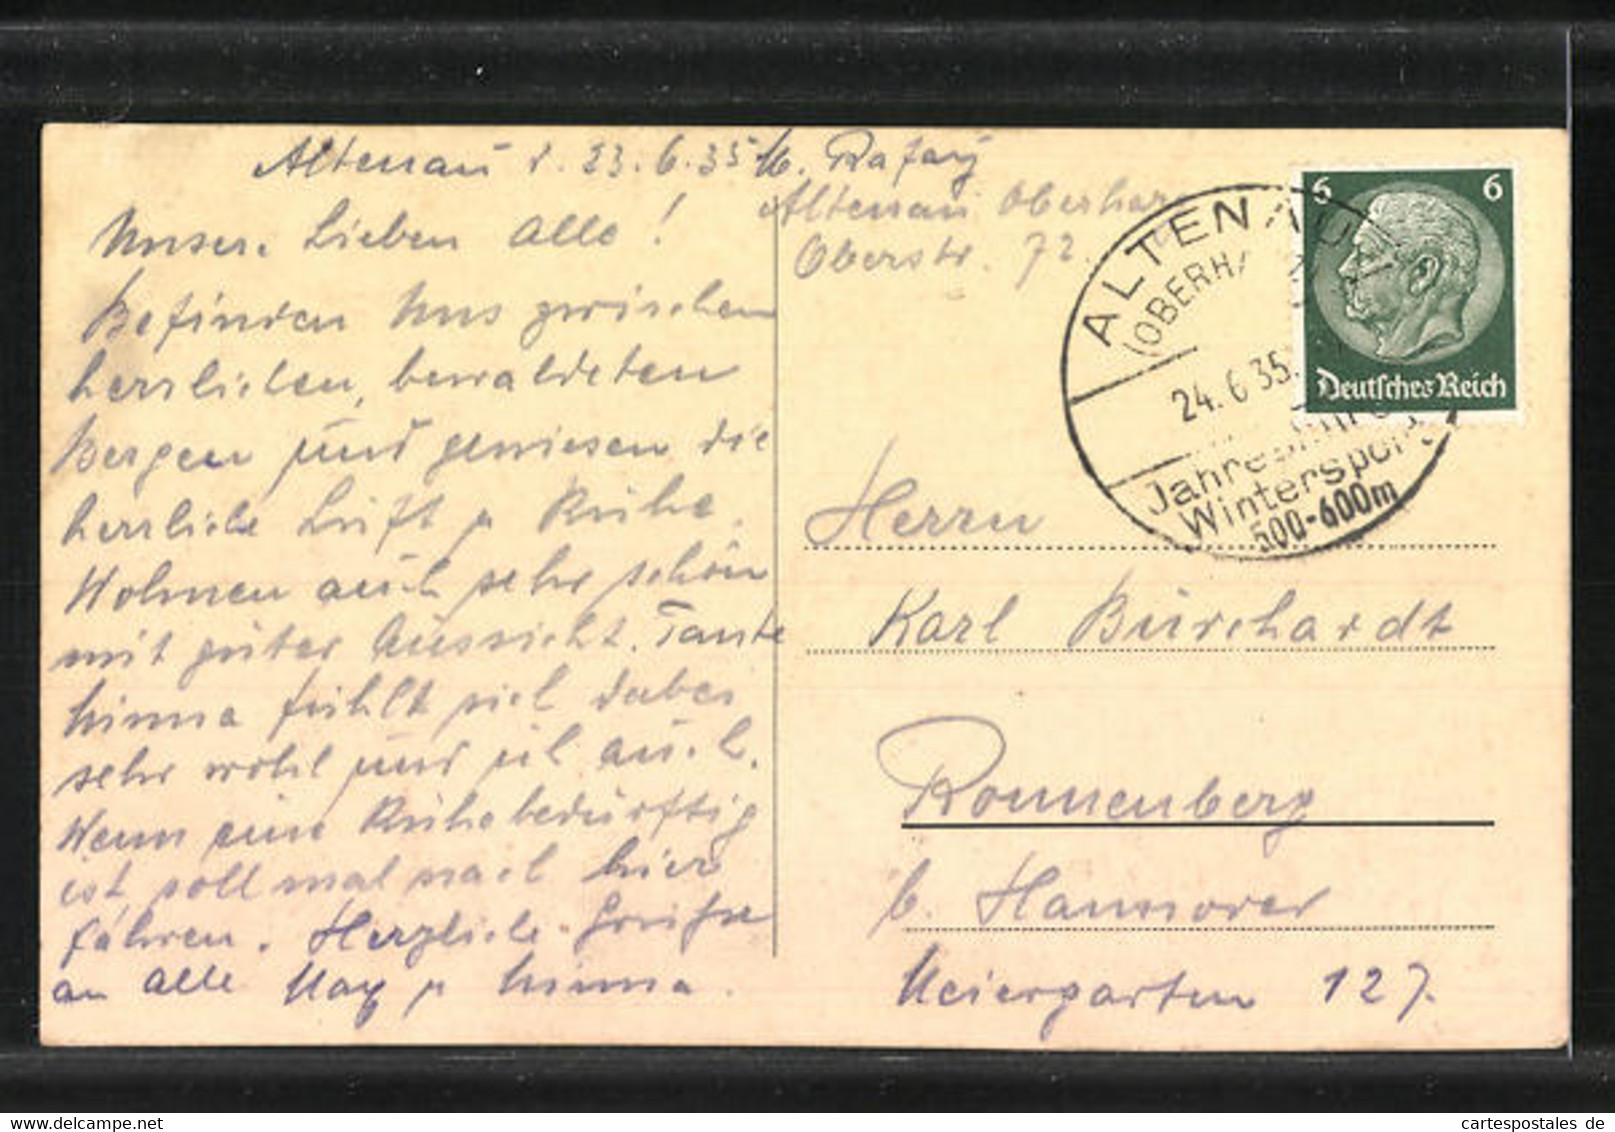 Altenau d. 23.6.35
Unsere Lieben Alle!
Befinden uns zwischen
herrlichen, bewaldeten
Bergen und geniesen die
herrliche Luft u Ruhe.
Wohnen auch sehr schön
mit guter Aussicht. Tante
Minna fühlt sich dabei
sehr wohl und ich auch.
Wenn eine Ruhebedürftig
ist, soll mal nach hier
fahren. Herzliche Grüße
an alle Max u Minna.
M.
Altenau Oberharz
Oberstr. 72.
ALTENAU
(OBERHA
24.6.35.
Wintersport
500-600m
6 6
Deutsches Reich
Herrn
Karl Burchardt
Ronnenberg
b. Hannover
Meiergarten 127.
cartespostales de